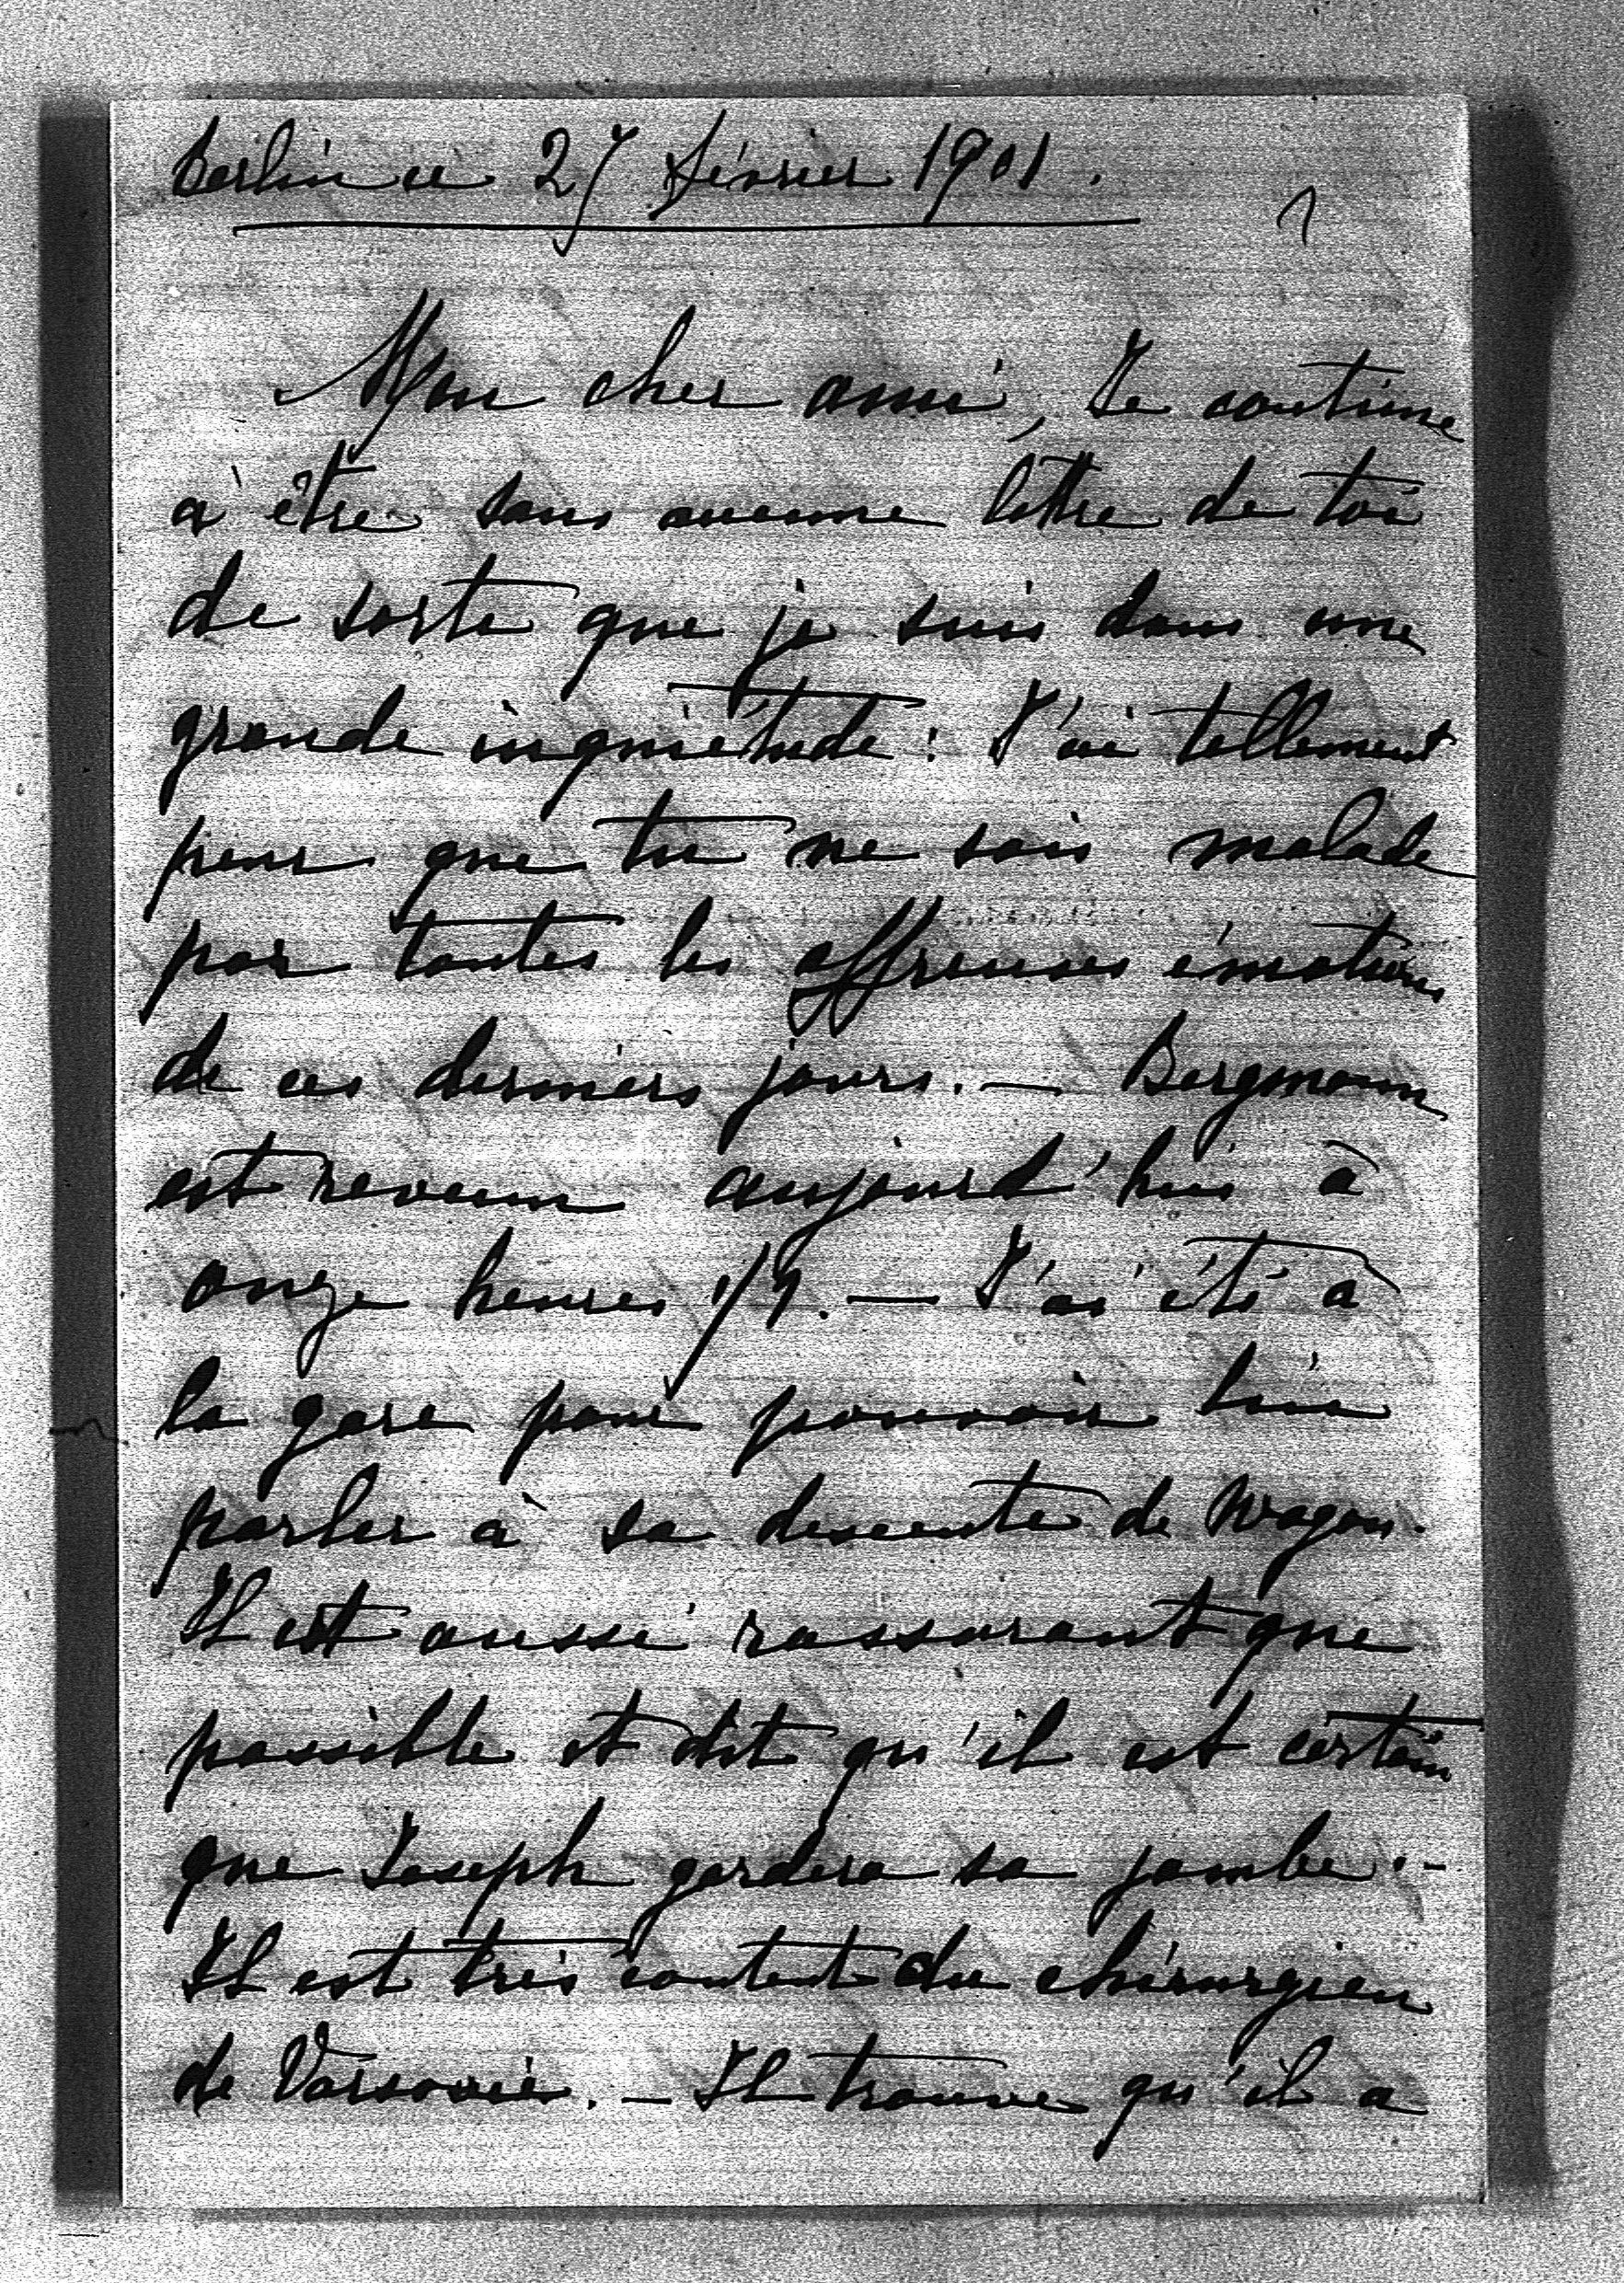 Berlin ce 27 février 1901.
Mon cher ami, Je continue
à être sans aucune lettre de toi
de sorte que je suis dans une
grande inquiétude! J'ai tellement
peur que tu ne sois malade
par toutes les affreuses émotions
de ces derniers jours. — Bergmann
est revenu aujourd'hui à
onze heures 1/2. — J'ai été à
la gare pour pouvoir lui
parler à sa descente de wagon.
Il est aussi rassurant que
possible et dit qu'il est certain
que Joseph gardera sa jambe. -
Il est très content du chirurgien
de Varsovie. — Il trouve qu'il a